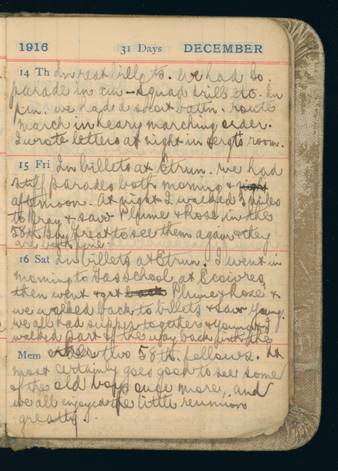 1916 31 Days DECEMBER
14 Th In rest billets. We had Co.
parade in a.m. - squad drill etc. In
p.m. we had a short battn. route
march in heavy marching order.
I wrote letters at night in sergts room.
15 Fri In billets at Etrun. We had
stiff parades both morning &
afternoon. At night I walked 3 miles
to Bray & saw Plume & Rose in the
58th Bty. Great to see them again & they
are both fine.
16 Sat In billets at Etrun. I went in
morning to Gas school at Ecoivres
then went & got Plume & Rose &
we walked back to billets & saw Young.
We all had supper together & Young & I
walked part of the way back with the
Mem other two 58th fellows. It
most certainly goes good to see some
of the old boys once more, and
we all enjoyed the little reunion
greatly.